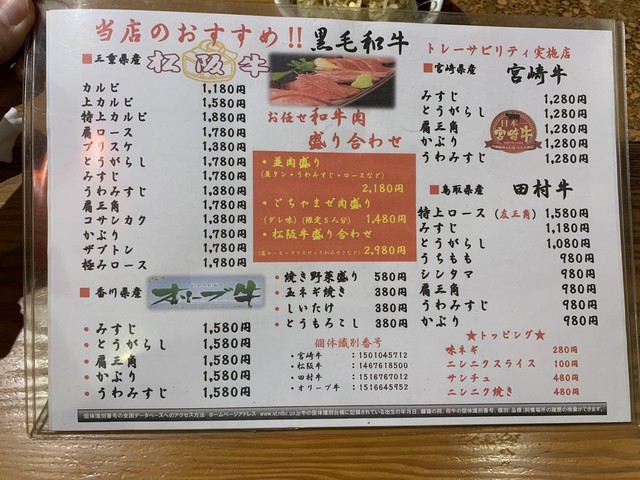 当店のおすすめ!! 黒毛和牛
■三重県産 松阪牛
カルビ 1,180円
上カルビ 1,580円
特上カルビ 1,880円
肩ロース 1,780円
ブリスケ 1,380円
とうがらし 1,780円
みすじ 1,780円
うわみすじ 1,380円
肩三角 1,780円
コサンカク 1,380円
かぶり 1,780円
ザブトン 1,780円
極みロース 1,980円
■香川県産 オリーブ牛
・みすじ 1,580円
・とうがらし 1,580円
・肩三角 1,580円
・かぶり 1,580円
・うわみすじ 1,580円
お任せ和牛肉
盛り合わせ
・並肉盛り
(並タン・うわみすじ・ロースなど)
2,180円
・ごちゃまぜ肉盛り
(ダレ味)(限定5人分) 1,480円
・松阪牛盛り合わせ
2,980円
・焼き野菜盛り 580円
・玉ネギ焼き 380円
・しいたけ 380円
・とうもろこし 380円
個体識別番号
・宮崎牛 :1501045712
・松阪牛 :1467618500
・田村牛 :1516767012
・オリーブ牛 :1516645952
トレーサビリティ実施店
■宮崎県産 宮崎牛
みすじ 1,280円
とうがらし 1,280円
肩三角 1,280円
かぶり 1,280円
うわみすじ 1,280円
日本一
宮崎牛
■鳥取県産 田村牛
特上ロース(友三角) 1,580円
みすじ 1,180円
とうがらし 1,080円
うちもも 980円
シンタマ 980円
肩三角 980円
うわみすじ 980円
かぶり 980円
★トッピング★
味ネギ 280円
ニンニクスライス 100円
サンチュ 480円
ニンニク焼き 480円
個体識別番号の全国データベースへのアクセス方法 ホームページアドレス www.id.nlbc.go.jp